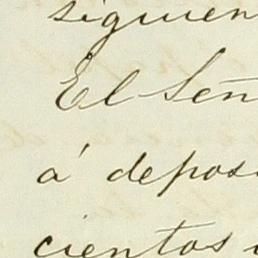 siguien
El Señ
á depos
cientos